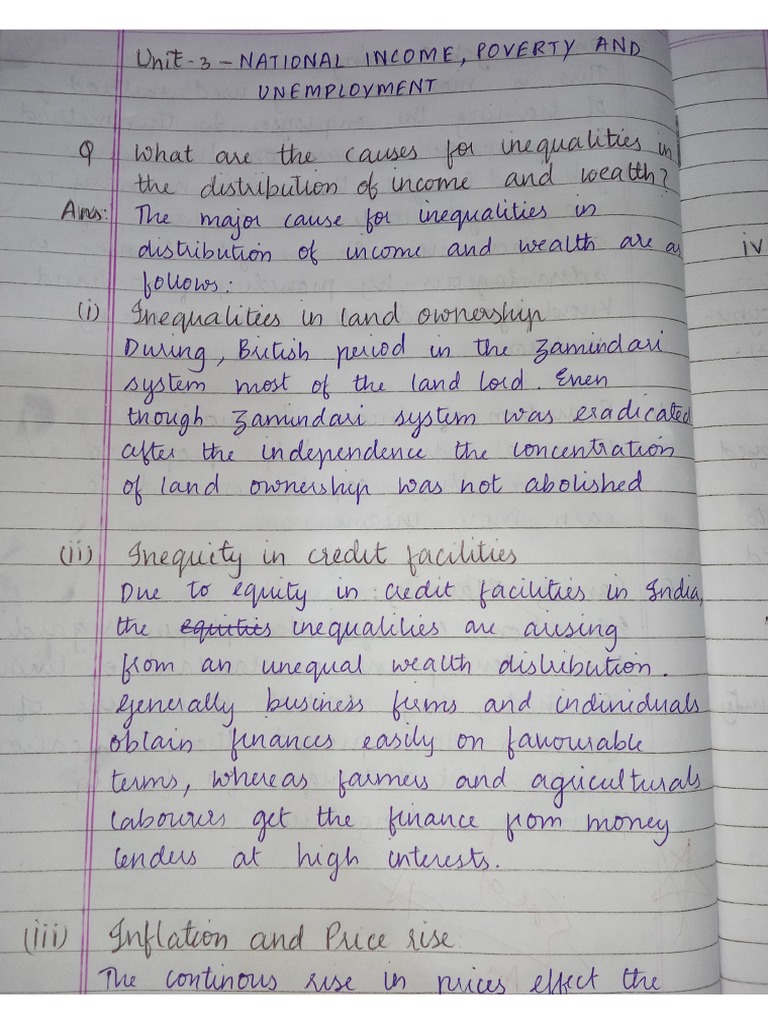 Unit-3-NATIONAL INCOME, POVERTY AND
UNEMPLOYMENT
Q What are the causes for inequalities in
the distribution of income and wealth?
Ans: The major cause for inequalities in
distribution of income and wealth are as
follows:
(i) Inequalities in land ownership
During, British period in the Zamindari
system most of the land lord. Even
though Zamindari system was eradicated
after the independence the concentration
of land ownership was not abolished
(ii) Inequity in credit facilities
Due to equity in credit facilities in India,
the equities inequalities are arising
from an unequal wealth distribution.
Generally business firms and individuals
obtain finances easily on favourable
terms, whereas farmers and agriculturals
labourers get the finance from money
lenders at high interests.
(iii) Inflation and Price rise
The continous rise in prices effect the
iv